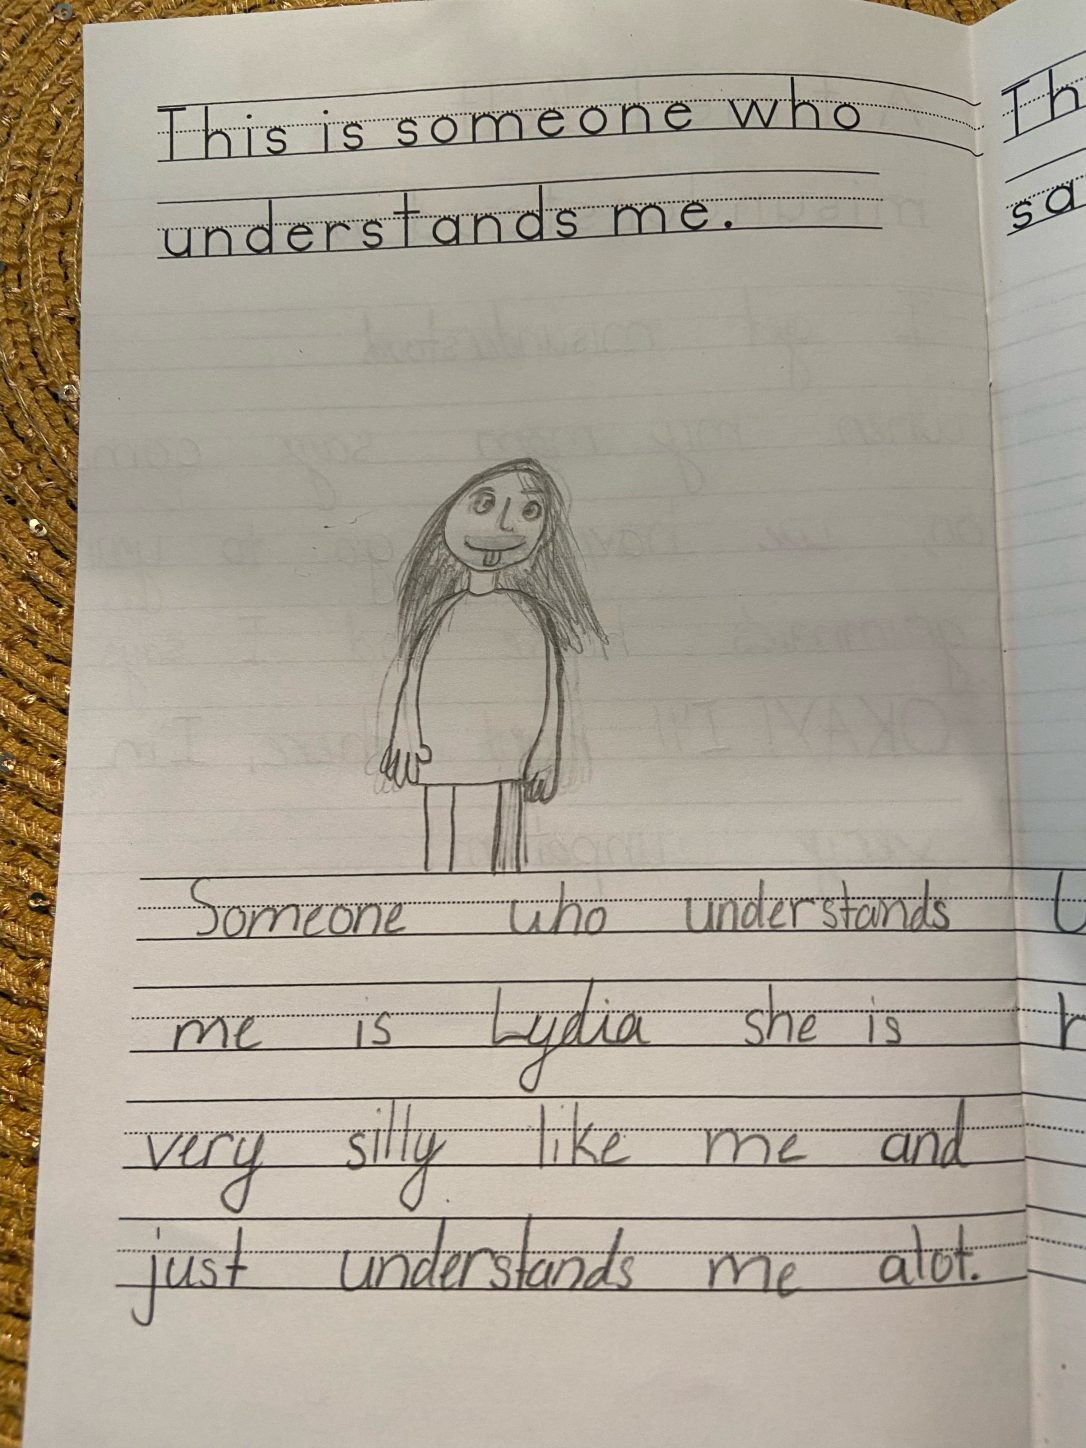 This is someone who
understands me.
Someone who understands
me is Lydia she is
very silly like me and
just understands me alot.
Th
sa